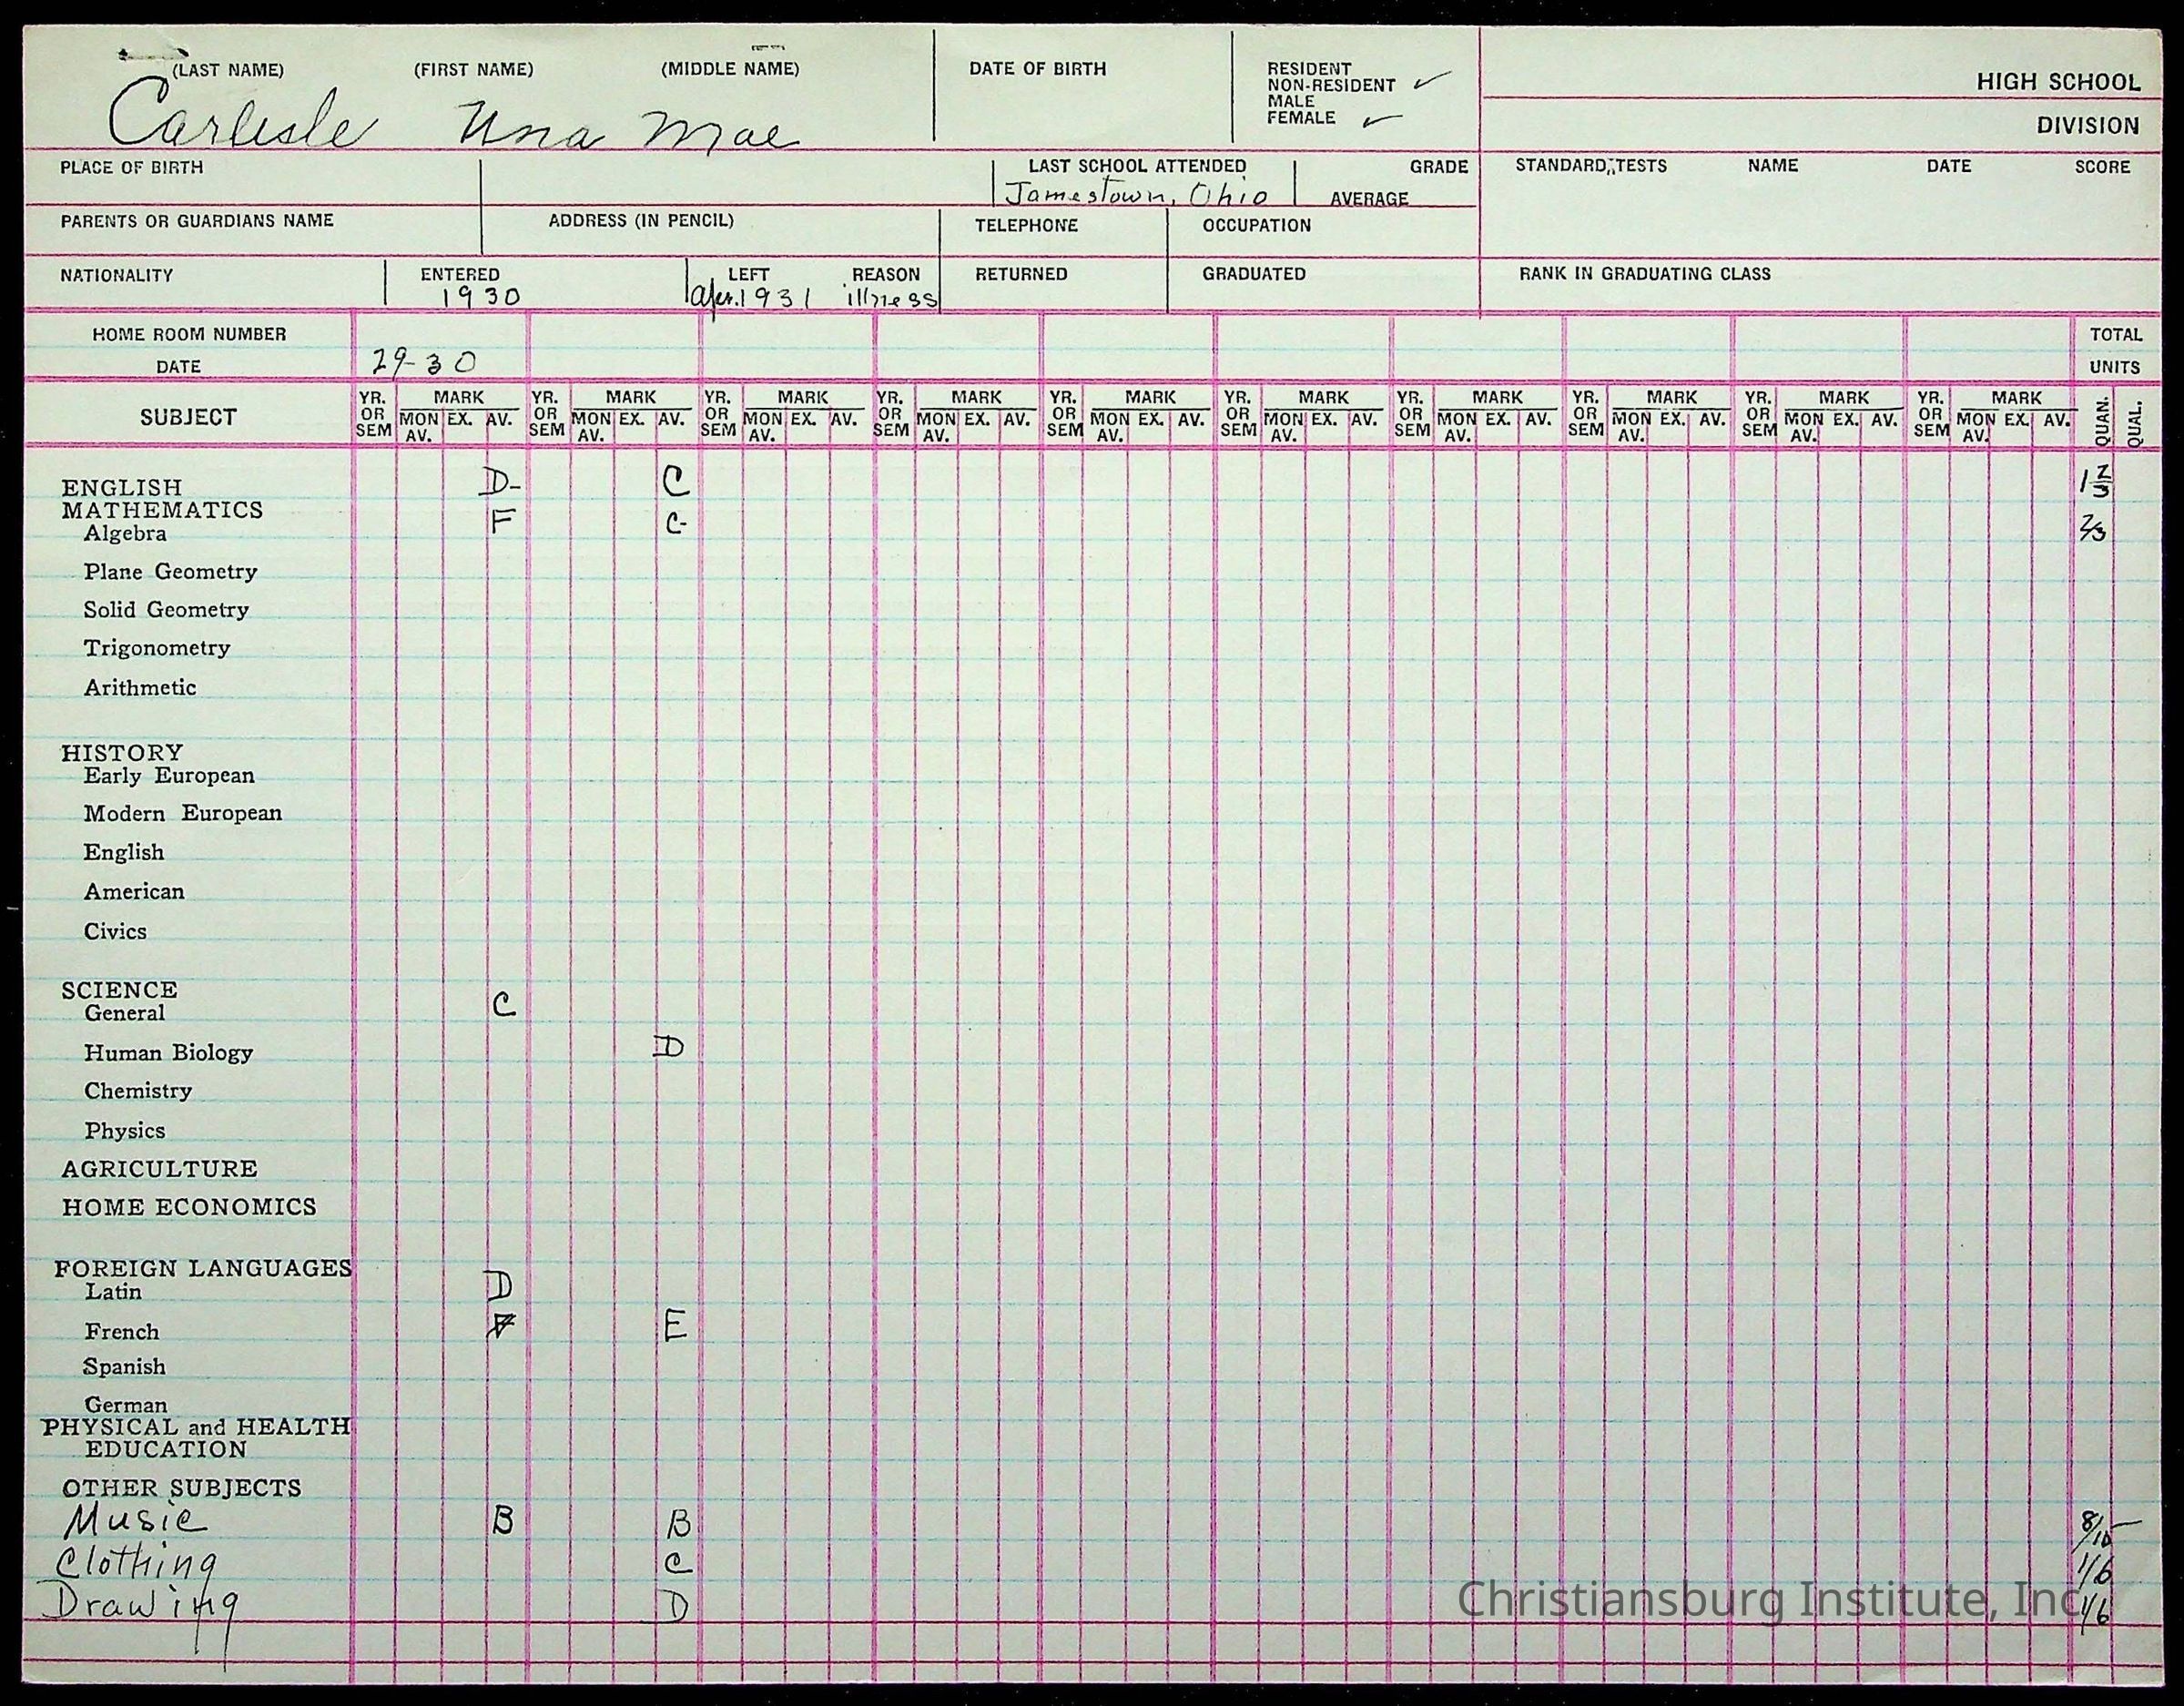 (LAST NAME) (FIRST NAME) (MIDDLE NAME) DATE OF BIRTH RESIDENT
NON-RESIDENT ✓
MALE
FEMALE ✓
HIGH SCHOOL
DIVISION
Carlisle Una Mae
PLACE OF BIRTH LAST SCHOOL ATTENDED GRADE STANDARD TESTS NAME DATE SCORE
Jamestown, Ohio AVERAGE
PARENTS OR GUARDIANS NAME ADDRESS (IN PENCIL) TELEPHONE OCCUPATION
NATIONALITY ENTERED LEFT REASON RETURNED GRADUATED RANK IN GRADUATING CLASS
1930 Apr. 1931 illness
HOME ROOM NUMBER TOTAL
DATE 29-30 UNITS
SUBJECT YR. OR SEM MARK MON AV. EX. AV. YR. OR SEM MARK MON AV. EX. AV. YR. OR SEM MARK MON AV. EX. AV. YR. OR SEM MARK MON AV. EX. AV. YR. OR SEM MARK MON AV. EX. AV. YR. OR SEM MARK MON AV. EX. AV. YR. OR SEM MARK MON AV. EX. AV. YR. OR SEM MARK MON AV. EX. AV. YR. OR SEM MARK MON AV. EX. AV. YR. OR SEM MARK MON AV. EX. AV. QUAN. QUAL.
ENGLISH D- C 1 2/3
MATHEMATICS
Algebra F C- 2/3
Plane Geometry
Solid Geometry
Trigonometry
Arithmetic
HISTORY
Early European
Modern European
English
American
Civics
SCIENCE
General C
Human Biology D
Chemistry
Physics
AGRICULTURE
HOME ECONOMICS
FOREIGN LANGUAGES
Latin D
French F E
Spanish
German
PHYSICAL and HEALTH
EDUCATION
OTHER SUBJECTS
Music B B 8/15
Clothing C 1/6
Drawing D 1/6
Christiansburg Institute, Inc